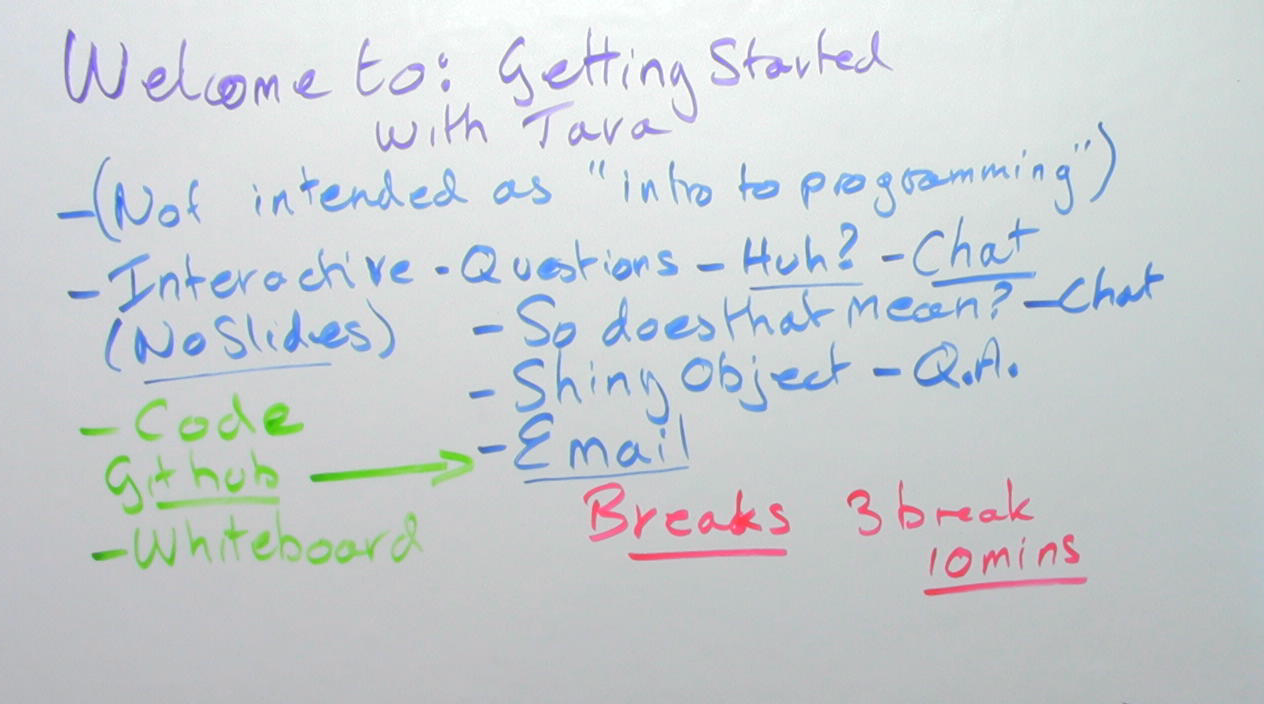 Welcome to: Getting Started
with Java
- (Not intended as "intro to programming")
- Interactive - Questions - Huh? - Chat
(No Slides) - So does that mean? - Chat
- Shiny Object - Q.A.
- Code
- Email
Github →
- Whiteboard
Breaks 3 break
10mins